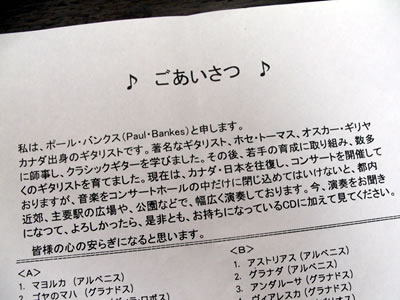 ♪ ごあいさつ ♪
私は、ポール・バンクス(Paul・Bankes)と申します。
カナダ出身のギタリストです。著名なギタリスト、ホセ・トーマス、オスカー・ギリヤ
に師事し、クラシックギターを学びました。その後、若手の育成に取り組み、数多
くのギタリストを育てました。現在は、カナダ・日本を往復し、コンサートを開催して
おりますが、音楽をコンサートホールの中だけに閉じ込めてはいけないと、都内
近郊、主要駅の広場や、公園などで、幅広く演奏しております。今、演奏をお聞き
になつて、よろしかったら、是非とも、お持ちになっているCDに加えて見てください。
皆様の心の安らぎになると思います。
<A>
1. マヨルカ (アルベニス)
2. ゴヤのマハ (グラナドス)
<B>
1. アストリアス (アルベニス)
2. グラナダ (アルベニス)
3. アンダルーサ (グラナドス)